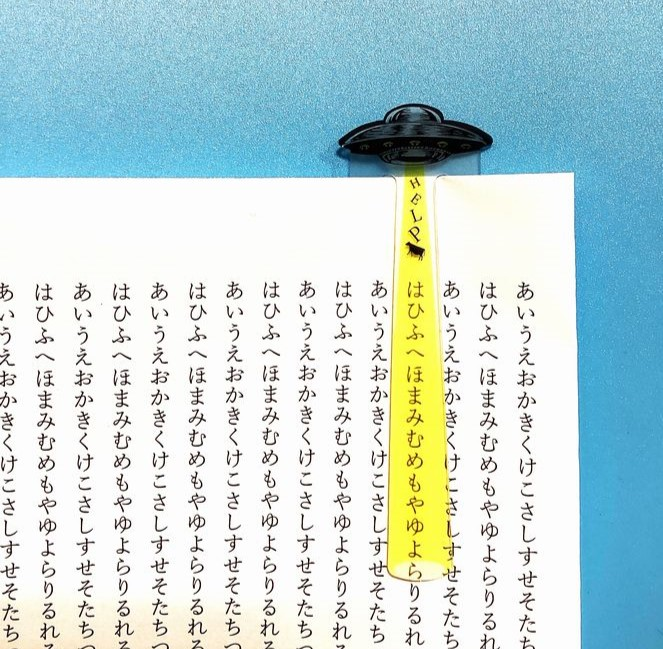 HELP
あいうえおかきくけこさしすせそたち
はひふへほまみむめもやゆよらりるれ
あいうえおかきくけこさしすせそたち
はひふへほまみむめもやゆよらりるれ
あいうえおかきくけこさしすせそたち
はひふへほまみむめもやゆよらりるれ
あいうえおかきくけこさしすせそたち
はひふへほまみむめもやゆよらりるれ
あいうえおかきくけこさしすせそたちつ
はひふへほまみむめもやゆよらりるれろ
あいうえおかきくけこさしすせそたちつ
はひふへほまみむめもやゆよらりるれろ
あいうえおかきくけこさしすせそたちつ
はひふへほまみむめもやゆよらりるれろ
あいうえおかきくけこさしすせそたち